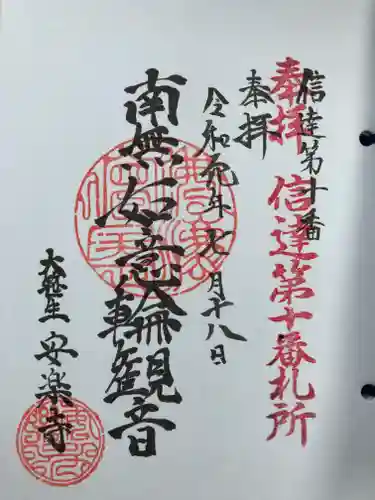 信達第十番
奉拝 信達第十番札所
奉拝
令和元年七月廿八日
南無如意輪観音
大苗代 安楽寺